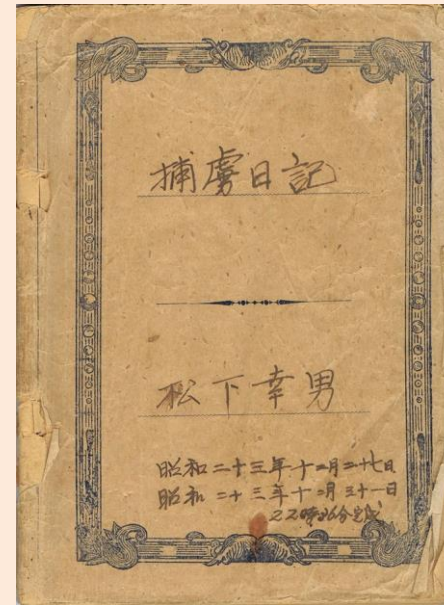 捕虜日記
松下幸男
昭和二十三年十二月二十七日
昭和二十三年十二月三十一日
22時36分完成